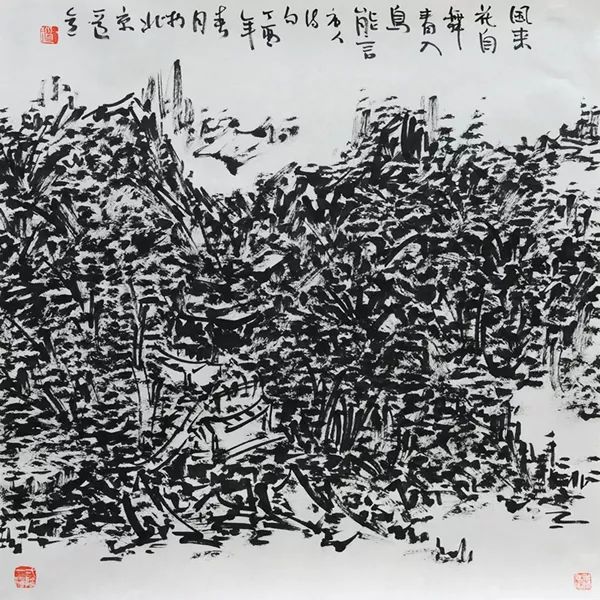 風来
花自
舞
春入
鳥
能言
人
诗
句
丁酉
年
春
月
於
北
京